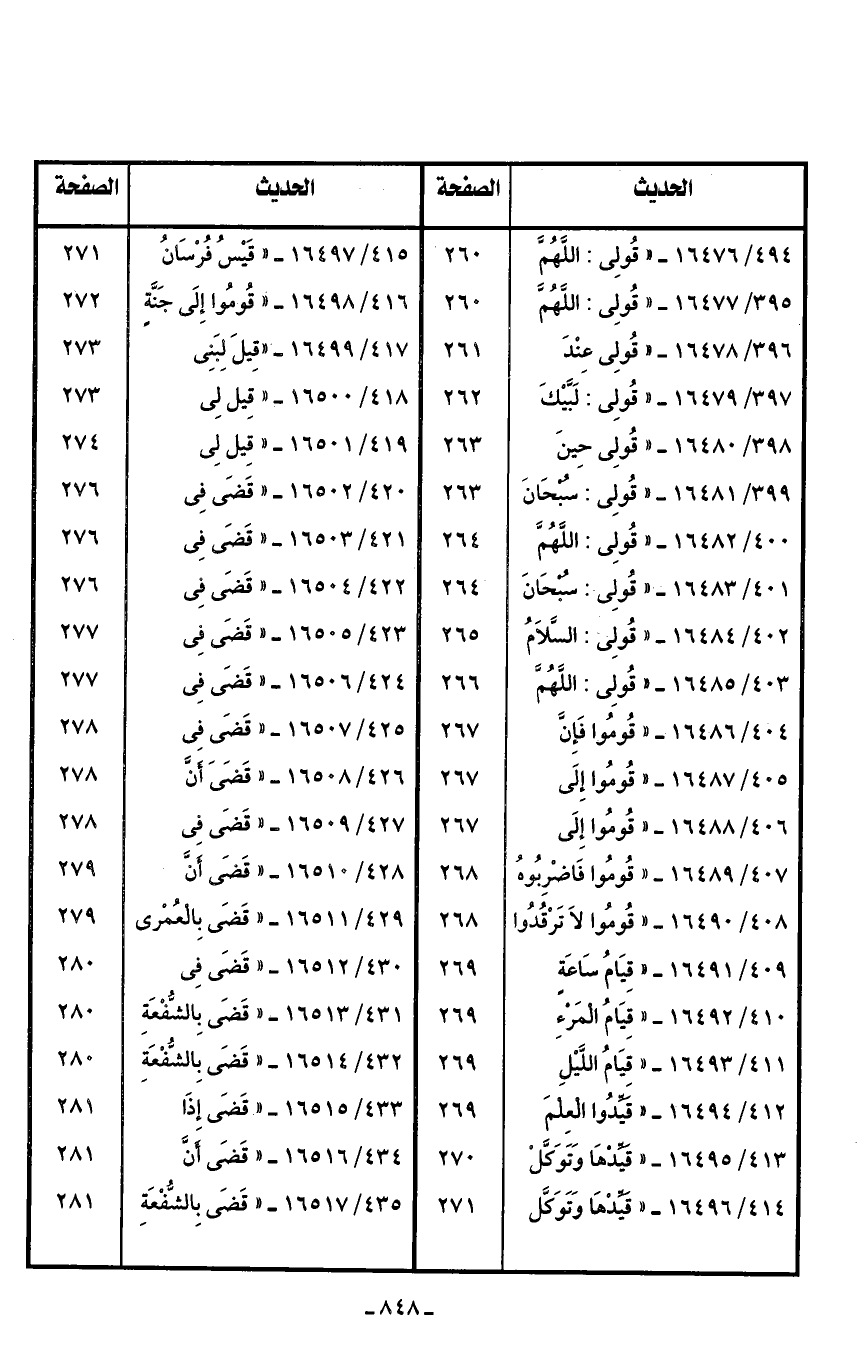 الحديث الصفحة الحديث الصفحة
٤٩٤/ ١٦٤٧٦ ـ « قُولِى : اللَّهُمَّ ٢٦٠ ٤١٥/ ١٦٤٩٧ ـ « قَيْسُ فُرْسَانُ ٢٧١
٣٩٥/ ١٦٤٧٧ ـ « قُولِى : اللَّهُمَّ ٢٦٠ ٤١٦/ ١٦٤٩٨ ـ « قُومُوا إِلَى جَنَّةٍ ٢٧٢
٣٩٦/ ١٦٤٧٨ ـ « قُولِى عِنْدَ ٢٦١ ٤١٧/ ١٦٤٩٩ ـ «قِيلَ لِبَنِى ٢٧٣
٣٩٧/ ١٦٤٧٩ ـ « قُولِى : لَبَّيْكَ ٢٦٢ ٤١٨/ ١٦٥٠٠ ـ « قِيل لِى ٢٧٣
٣٩٨/ ١٦٤٨٠ ـ « قُولِى حِينَ ٢٦٣ ٤١٩/ ١٦٥٠١ ـ « قِيل لِى ٢٧٤
٣٩٩/ ١٦٤٨١ ـ « قُولِى : سُبْحَانَ ٢٦٣ ٤٢٠/ ١٦٥٠٢ ـ « قَضَى فِى ٢٧٦
٤٠٠/ ١٦٤٨٢ ـ « قُولِى : اللَّهُمَّ ٢٦٤ ٤٢١/ ١٦٥٠٣ ـ « قَضَى فِى ٢٧٦
٤٠١/ ١٦٤٨٣ ـ « قُولِى : سُبْحَانَ ٢٦٤ ٤٢٢/ ١٦٥٠٤ ـ « قَضَى فِى ٢٧٦
٤٠٢/ ١٦٤٨٤ ـ « قُولِى : السَّلاَمُ ٢٦٥ ٤٢٣/ ١٦٥٠٥ ـ « قَضَى فِى ٢٧٧
٤٠٣/ ١٦٤٨٥ ـ « قُولِى : اللَّهُمَّ ٢٦٦ ٤٢٤/ ١٦٥٠٦ ـ « قَضَى فِى ٢٧٧
٤٠٤/ ١٦٤٨٦ ـ « قُومُوا فَإِنَّ ٢٦٧ ٤٢٥/ ١٦٥٠٧ ـ « قَضَى فِى ٢٧٨
٤٠٥/ ١٦٤٨٧ ـ « قُومُوا إِلَى ٢٦٧ ٤٢٦/ ١٦٥٠٨ ـ « قَضَىَ أَنَّ ٢٧٨
٤٠٦/ ١٦٤٨٨ ـ « قُومُوا إِلَى ٢٦٧ ٤٢٧/ ١٦٥٠٩ ـ « قَضَى فِى ٢٧٨
٤٠٧/ ١٦٤٨٩ ـ « قُومُوا فَاضْرِبُوهُ ٢٦٨ ٤٢٨/ ١٦٥١٠ ـ « قَضَى أَنَّ ٢٧٩
٤٠٨/ ١٦٤٩٠ ـ « قُومُوا لاَ تَرْقُدُوا ٢٦٨ ٤٢٩/ ١٦٥١١ ـ « قَضَى بِالْعُمْرى ٢٧٩
٤٠٩/ ١٦٤٩١ ـ « قِيَامُ سَاعَةٍ ٢٦٩ ٤٣٠/ ١٦٥١٢ ـ « قَضَى فِى ٢٨٠
٤١٠/ ١٦٤٩٢ ـ « قِيَامُ الْمَرْءِ ٢٦٩ ٤٣١/ ١٦٥١٣ ـ « قَضَى بِالشُّفْعَةِ ٢٨٠
٤١١/ ١٦٤٩٣ ـ « قِيَامُ اللَّيْلِ ٢٦٩ ٤٣٢/ ١٦٥١٤ ـ « قَضَى بِالشُّفْعَةِ ٢٨٠
٤١٢/ ١٦٤٩٤ ـ « قَيِّدُوا الْعِلْمَ ٢٦٩ ٤٣٣/ ١٦٥١٥ ـ « قَضَى إِذَا ٢٨١
٤١٣/ ١٦٤٩٥ ـ « قَيِّدْهَا وَتَوَكَّلْ ٢٧٠ ٤٣٤/ ١٦٥١٦ ـ « قَضَى أَنَّ ٢٨١
٤١٤/ ١٦٤٩٦ ـ « قَيِّدْهَا وَتَوَكَّل ٢٧١ ٤٣٥/ ١٦٥١٧ ـ « قَضَى بِالشُّفْعَةِ ٢٨١
ـ ٨٤٨ ـ